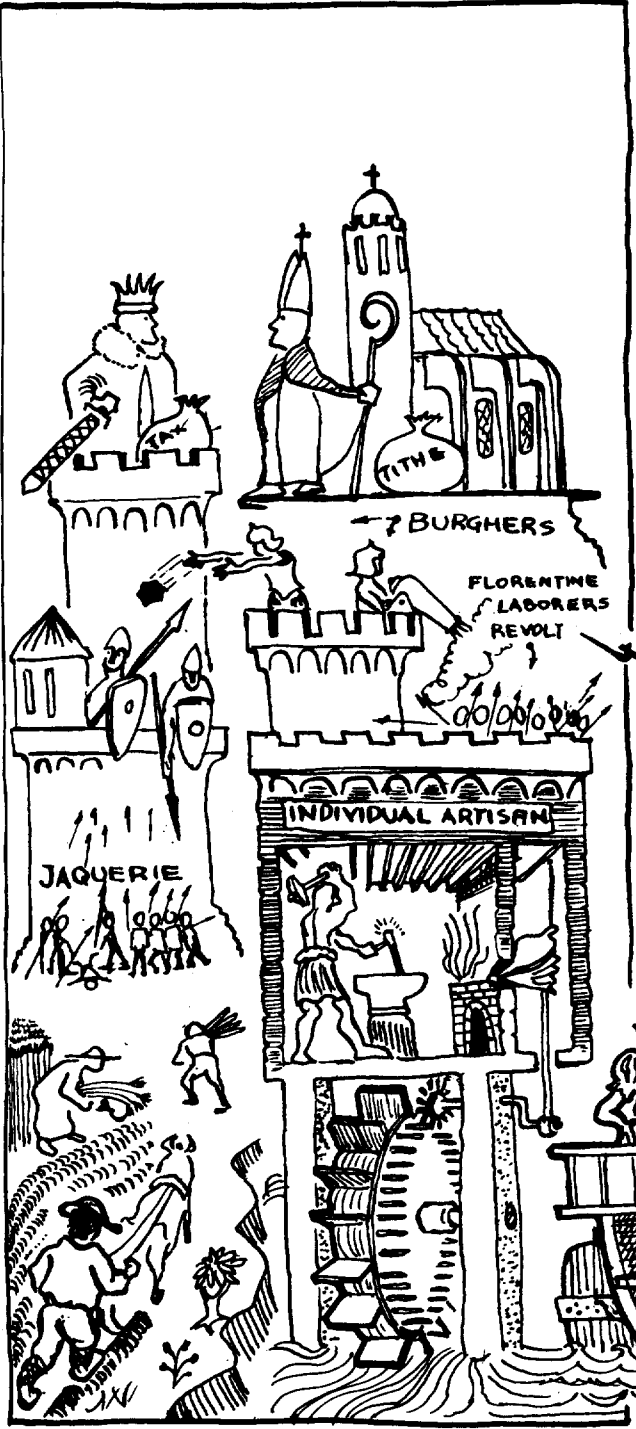 TAX
TITHE
← ? BURGHERS
FLORENTINE
LABORERS
REVOLT
INDIVIDUAL ARTISAN
JAQUERIE